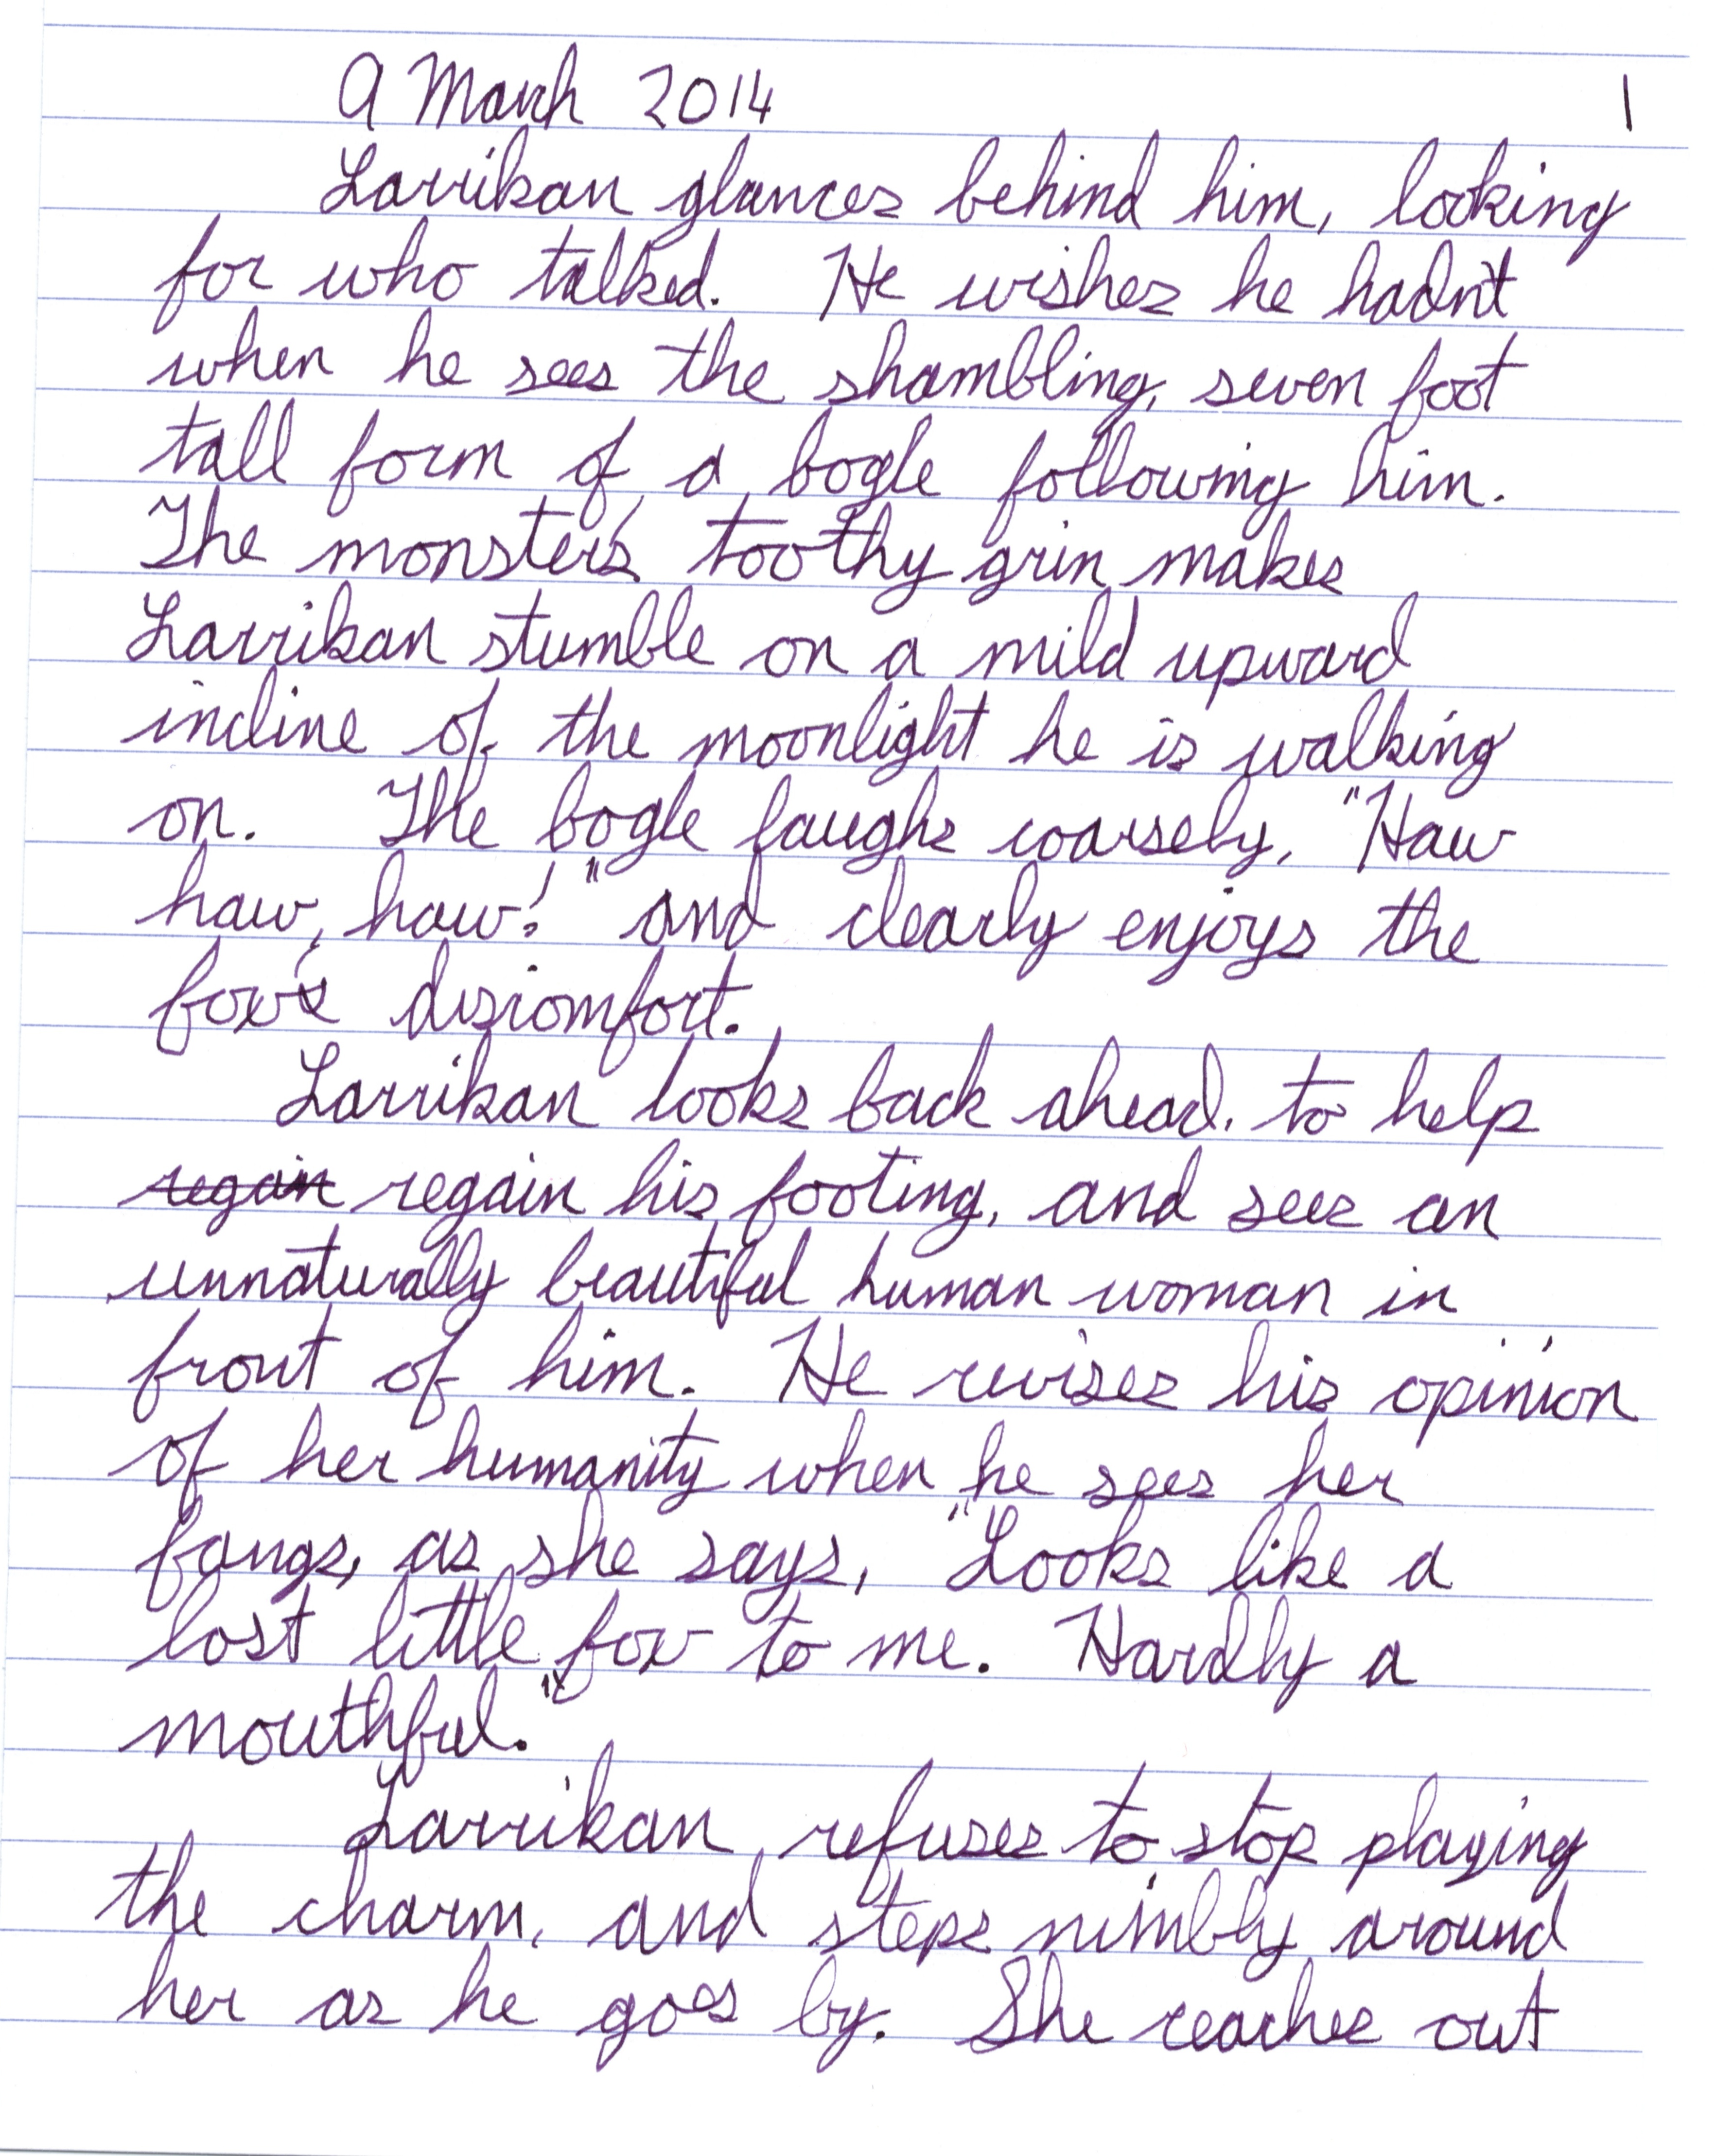 9 March 2014 1
Larrikan glances behind him, looking
for who talked. He wishes he hadn't
when he sees the shambling, seven foot
tall form of a bogle following him.
The monster's toothy grin makes
Larrikan stumble on a mild upward
incline of the moonlight he is walking
on. The bogle laughs coarsely, "Haw
haw, haw!" and clearly enjoys the
fox's discomfort.
Larrikan looks back ahead, to help
regain regain his footing, and sees an
unnaturally beautiful human woman in
front of him. He revises his opinion
of her humanity when he sees her
fangs, as she says, "Looks like a
lost little fox to me. Hardly a
mouthful."
Larrikan refuses to stop playing
the charm, and steps nimbly around
her as he goes by. She reaches out